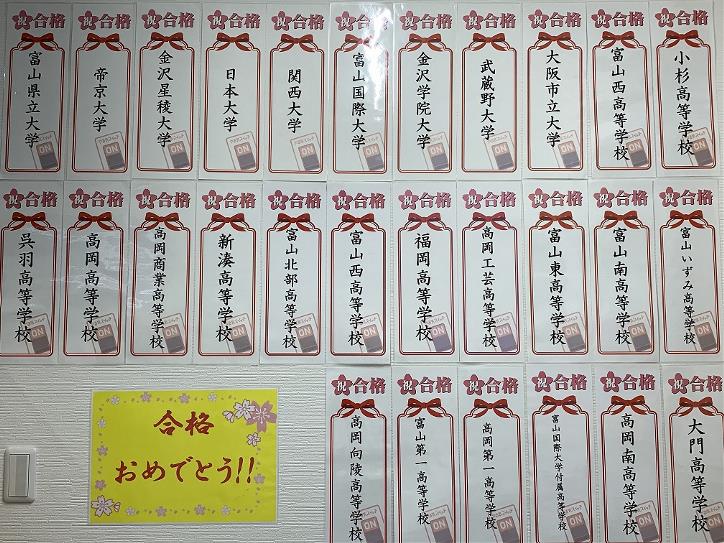 祝合格
富山県立大学
祝合格
帝京大学
祝合格
金沢星稜大学
祝合格
日本大学
祝合格
関西大学
祝合格
富山国際大学
祝合格
金沢学院大学
祝合格
武蔵野大学
祝合格
大阪市立大学
祝合格
富山西高等学校
祝合格
小杉高等学校
祝合格
呉羽高等学校
祝合格
高岡高等学校
祝合格
高岡商業高等学校
祝合格
新湊高等学校
祝合格
富山北部高等学校
祝合格
富山西高等学校
祝合格
福岡高等学校
祝合格
高岡工芸高等学校
祝合格
富山東高等学校
祝合格
富山南高等学校
祝合格
富山いずみ高等学校
合格
おめでとう!!
祝合格
高岡向陵高等学校
祝合格
富山第一高等学校
祝合格
高岡第一高等学校
祝合格
富山国際大学付属高等学校
祝合格
高岡南高等学校
祝合格
大門高等学校